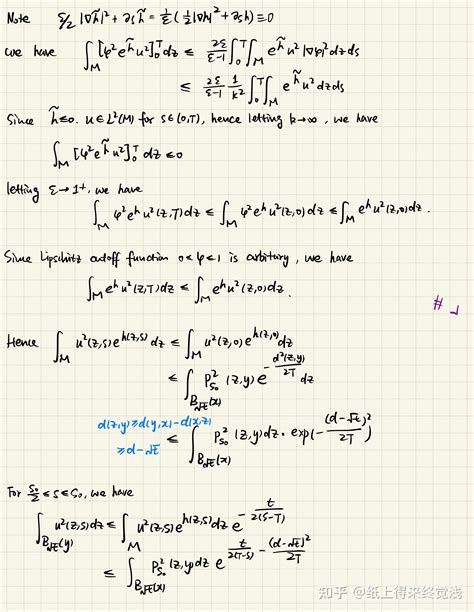 Note ε/2 |∇h̃|² + ∂ₛh̃ = 1/ε (1/2 |∇h|² + ∂ₛh) ≡ 0
We have ∫_M [φ² e^h̃ u²]₀ᵀ dz ≤ 2ε/(ε-1) ∫₀ᵀ ∫_M e^h̃ u² |∇φ|² dz ds
≤ 2ε/(ε-1) 1/k² ∫₀ᵀ ∫_M e^h̃ u² dz ds
Since h̃ ≤ 0. u ∈ L²(M) for s ∈ (0,T), hence letting k→∞, we have
∫_M [φ² e^h̃ u²]₀ᵀ dz ≤ 0
letting ε → 1⁺, we have
∫_M φ² e^h u²(z,T) dz ≤ ∫_M φ² e^h u²(z,0) dz ≤ ∫_M e^h u²(z,0) dz.
Since Lipschitz cutoff function 0 ≤ φ ≤ 1 is arbitrary, we have
∫_M e^h u²(z,T) dz ≤ ∫_M e^h u²(z,0) dz.
#
Hence ∫_M u²(z,s) e^{h(z,s)} dz ≤ ∫_M u²(z,0) e^{h(z,0)} dz
≤ ∫_{B_√t(x)} P²_{S₀}(z,y) e^{-d²(z,y)/2T} dz
d(z,y) ≥ d(y,x) - d(x,z)
≥ d - √t
≤ ∫_{B_√t(x)} P²_{S₀}(z,y) dz · exp(- (d-√t)²/2T)
For S₀/2 ≤ s ≤ S₀, we have
∫_{B_√t(y)} u²(z,s) dz ≤ ∫_M u²(z,s) e^{h(z,s)} dz e^{-t/2(s-T)}
≤ ∫_{B_√t(x)} P²_{S₀}(z,y) dz e^{t/2(T-s) - (d-√t)²/2T}
知乎 @纸上得来终觉浅